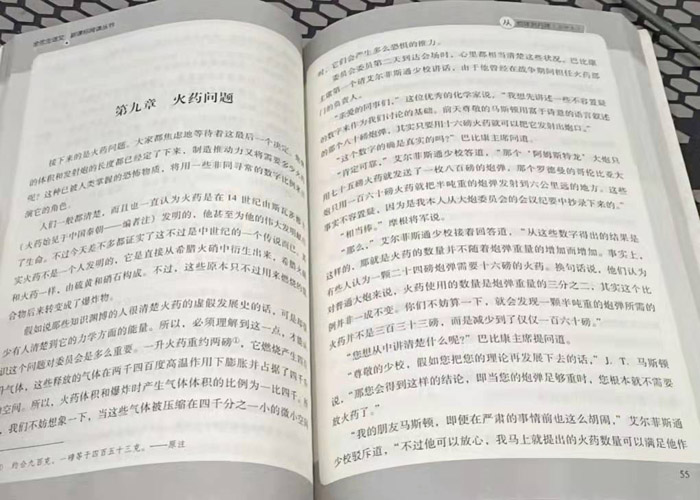 全优生语文 新课标阅读丛书
第九章 火药问题
接下来的是火药问题。大家都焦虑地等待着这最后一个决定。
的体积和发射炮的长度都已经定了下来，制造推动力又将需要多少火
呢？这种已被人类掌握的恐怖物质，将用一些非同寻常的数字比例来
演它的角色。
人们一般都清楚，而且也一直认为火药是在 14 世纪由斯瓦
（火药始见于中国秦朝——编者注）发明的，他甚至为他的伟大发明
了生命。不过今天差不多都证实了这不过是中世纪的一个传说而已，
实火药不是一个人发明的，它是直接从希腊火硝中衍生出来，希腊火
和火药一样，由硫黄和硝石构成。不过，这些原本只不过用来燃烧的
合物后来转变成了爆炸物。
假如说那些知识渊博的人很清楚火药的虚假发展史的话，可是
少有人清楚到它的力学方面的能量。所以，必须理解到这一点，才
识这个问题对委员会是多么重要。一升火药重约两磅①，它燃烧产生
气体，这些释放的气体在两千四百度高温作用下膨胀并占据了四千
的空间。所以，火药体积和爆炸时产生气体体积的比例为一比四千。
，我们不妨想象一下，当这些气体被压缩在四千分之一小的微小空间
约合九百克。一磅等于四百五十三克。——原注
从
，它们会产生多么恐惧的推力。
委员会委员第二天到达会场时，心里都相当清楚这些状况。巴比康
主席第一个请艾尔菲斯通少校讲话，由于他曾经在战争期间担任火药部
门的负责人。
“亲爱的同事们，”这位优秀的化学家说，“我想先讲述一些不容置疑
的数字来作为我们讨论的基础。前天尊敬的马斯顿用富于诗意的语言叙述
的那个八十磅炮弹，其实只要用十六磅火药就可以把它发射出炮口。”
“这个数字的确是真实的吗？”巴比康主席问道。
“肯定可靠，”艾尔菲斯通少校答道，“那个‘阿姆斯特龙’大炮只
用七十五磅火药就发送了一枚八百磅的炮弹，那个罗德曼的哥伦比亚大
炮只用一百六十磅火药就把半吨重的炮弹发射到六公里远的地方。这些
事实不容置疑，因为是我本人从大炮委员会的会议纪要中抄录下来的。”
“相当棒。”摩根将军说。
“那么，”艾尔菲斯通少校接着回答道，“从这些数字得出的结果是
这样的，那就是火药的数量并不随着炮弹重量的增加而增加。事实上，
有些人认为一颗二十四磅炮弹需要十六磅的火药。换句话说，他们认为
对普通大炮来说，火药使用的数量是炮弹重量的三分之二，其实这个比
例并非一成不变。你们不妨算一下，就会发现一颗半吨重的炮弹所需的
火药并不是三百三十三磅，而是减少到了仅仅一百六十磅。”
“您想从中讲清楚什么呢？”巴比康主席提问道。
“尊敬的少校，假如您把您的理论再发展下去的话，”J. T. 马斯顿
说，“那您会得到这样的结论，即当您的炮弹足够重时，您根本就不需要
放火药了。”
“我的朋友马斯顿，即便在严肃的事情前也这么胡闹，”艾尔菲斯通
少校驳斥道，“不过他可以放心，我马上就提出的火药数量可以满足他作
55